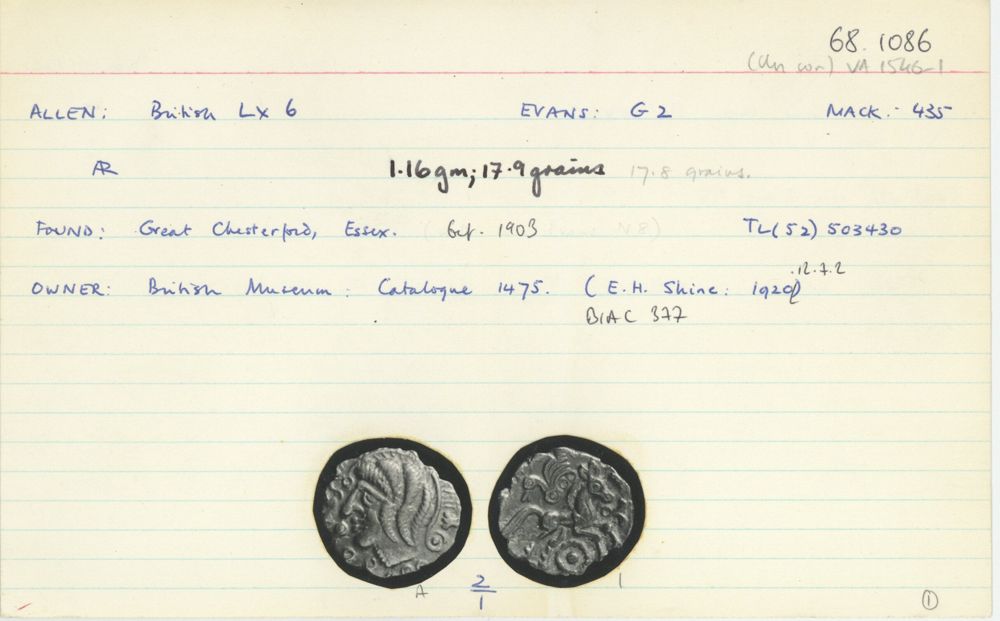 68.1086
VA 1546-1
ALLEN: British LX 6 EVANS: G 2 MACK: 435
AR 1.16gm; 17.9grains 17.8 grains.
FOUND: Great Chesterford, Essex. bef. 1903 TL(52) 503430
OWNER: British Museum: Catalogue 1475. (E.H. Shine: 1920) .12.7.2
BIAC 377
A 2/1 1
1